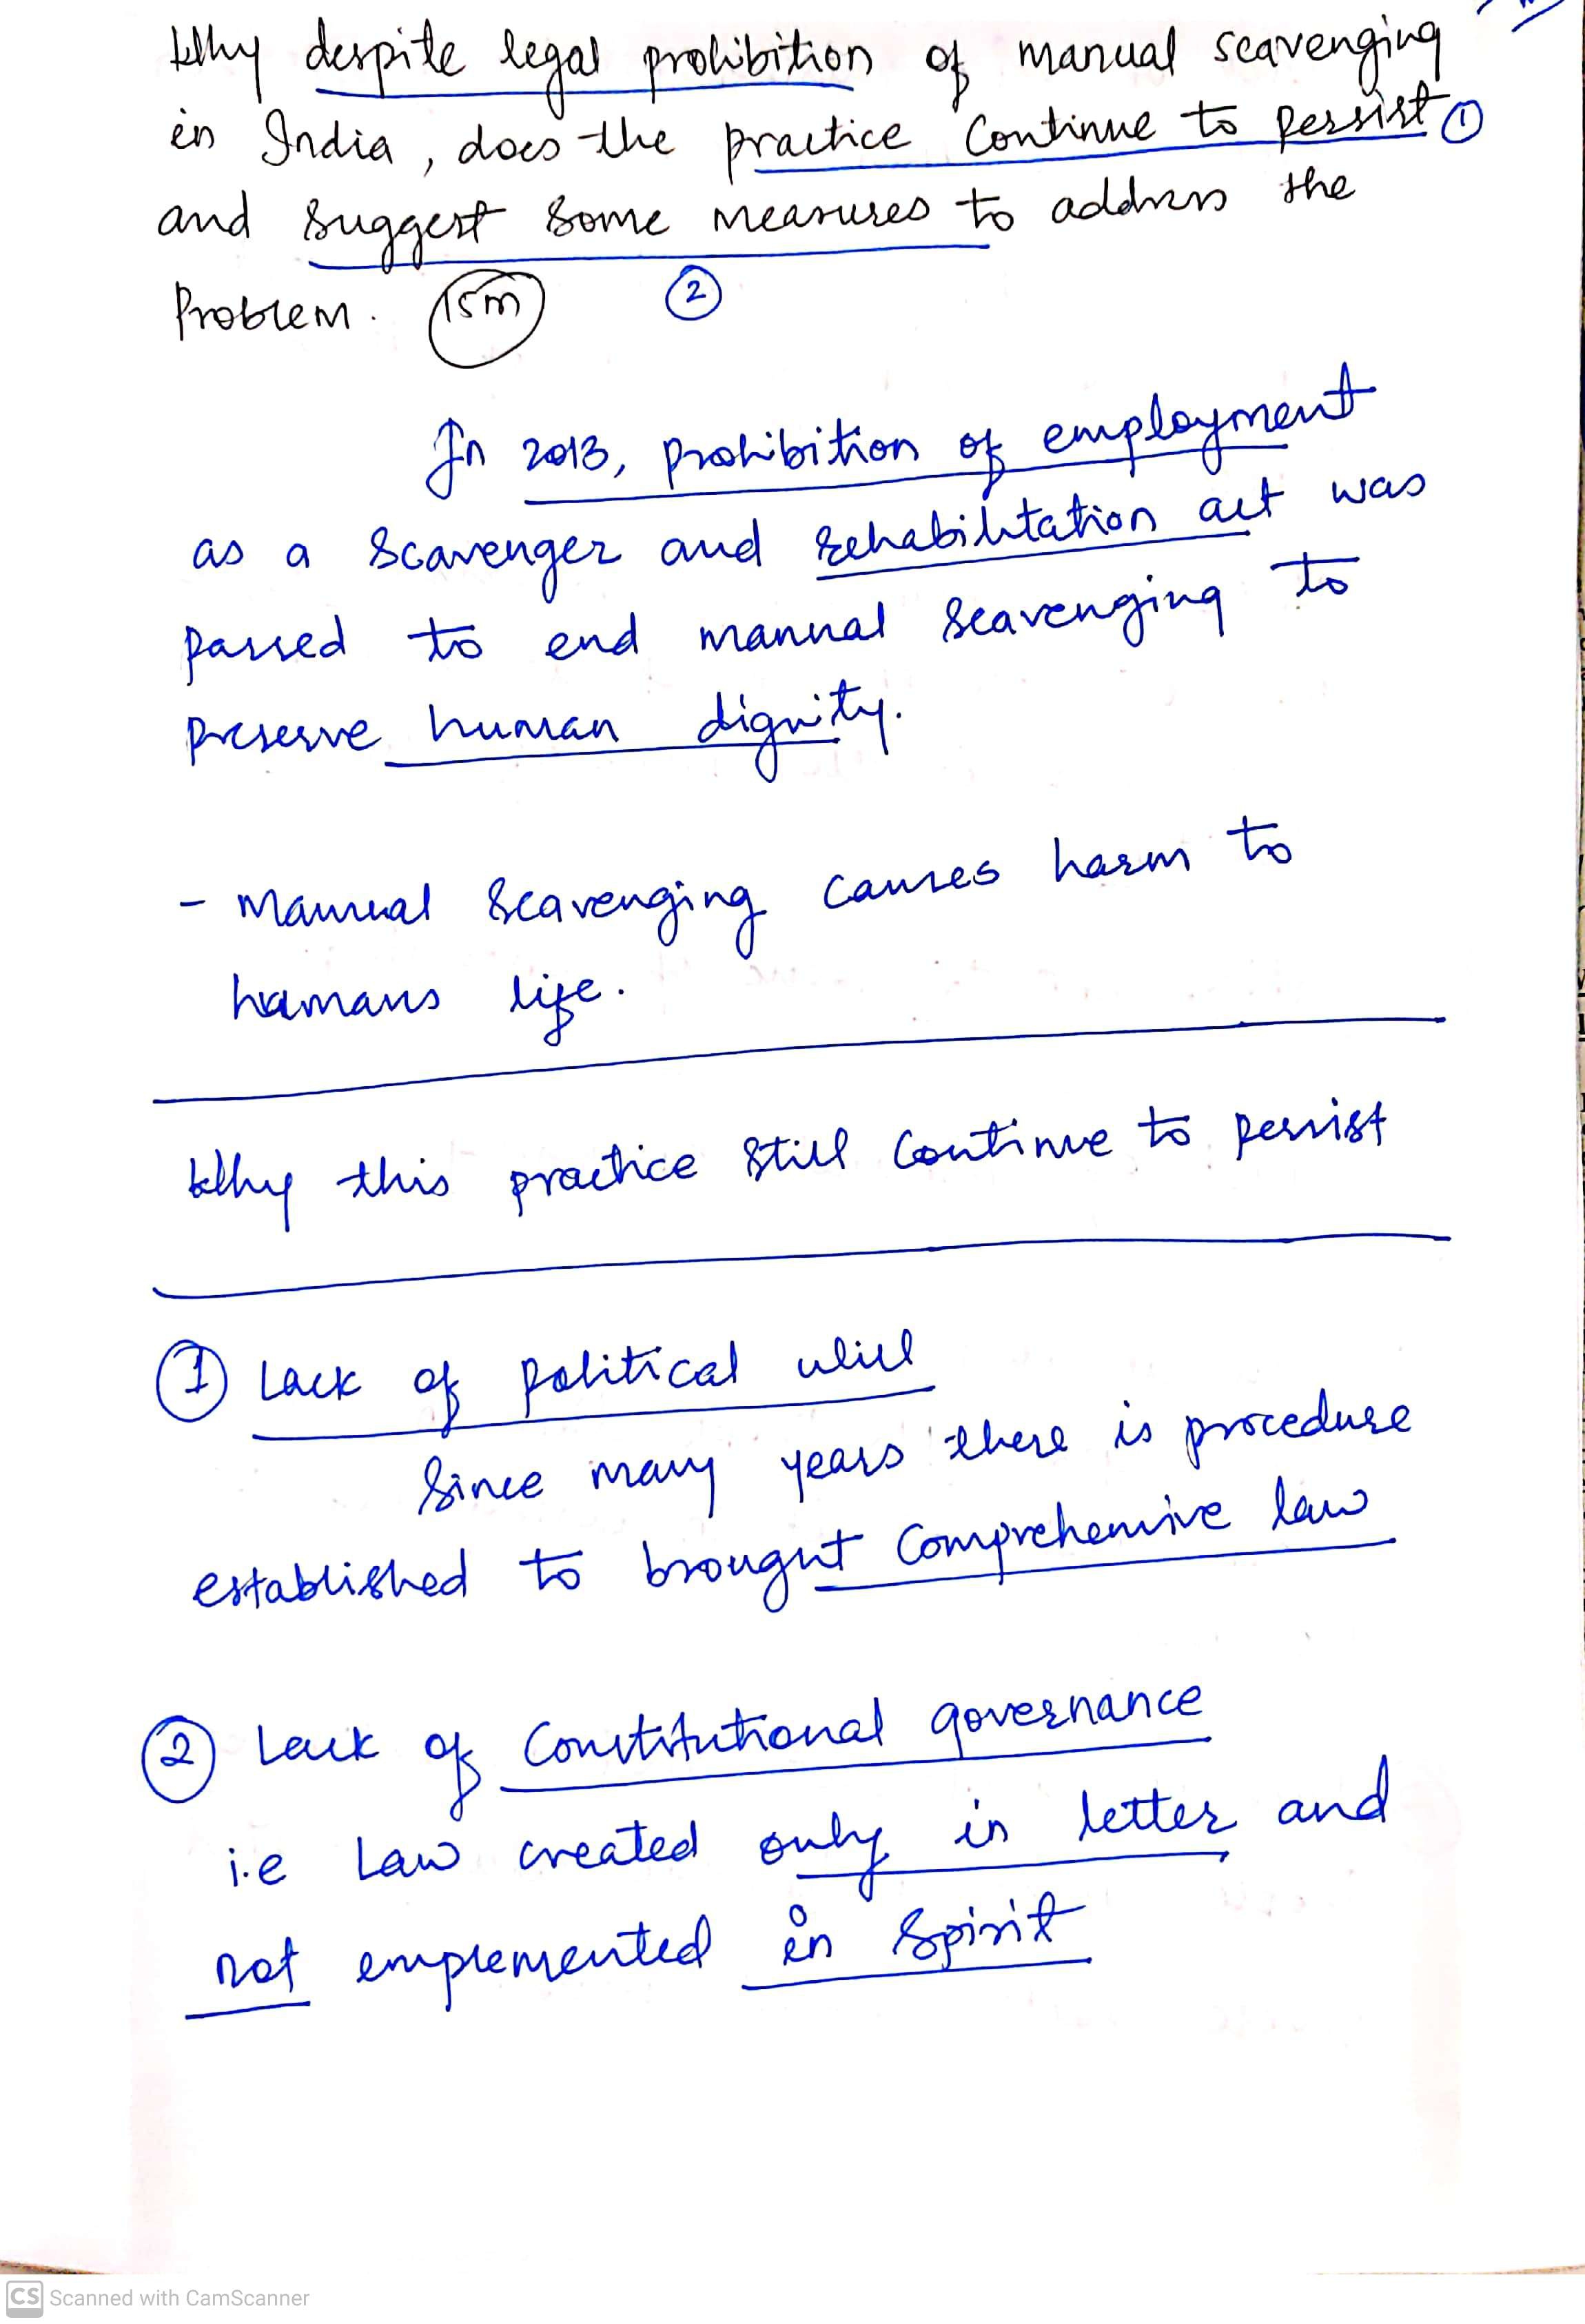 Why despite legal prohibition of manual scavenging
in India, does the practice Continue to persist ①
and suggest some measures to address the
Problem. 15m ②
In 2013, Prohibition of employment
as a Scavenger and rehabilitation act was
passed to end manual Scavenging to
Preserve human dignity.
- Manual Scavenging causes harm to
humans life.
Why this practice still Continue to persist
① Lack of political will
Since many years there is procedure
established to brought Comprehensive law
② Lack of Constitutional governance
i.e Law created only in letter and
not emplemented in Spirit
CS Scanned with CamScanner